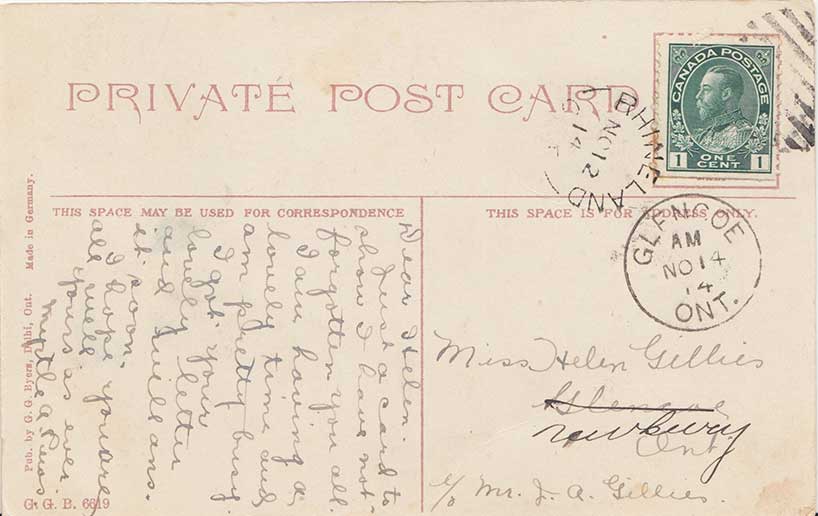 PRIVATE POST CARD
CANADA POSTAGE
1 ONE CENT 1
RHINELAND
NO 12
14
GLENCOE
AM
NO 14
14
ONT.
THIS SPACE MAY BE USED FOR CORRESPONDENCE
THIS SPACE IS FOR ADDRESS ONLY.
Dear Helen.
Just a card to
show I have not
forgotten you all.
I am having a
lovely time and
am pretty busy.
I got your
lovely letter
and will ans.
it soon.
I hope you are
all well
yours as ever
Myrtle A.
Miss Helen Gillies
Glencoe
newbury
Ont
c/o Mr. J. A. Gillies.
Pub. by G. G. Byers, Delhi, Ont. Made in Germany.
G. G. B. 6619